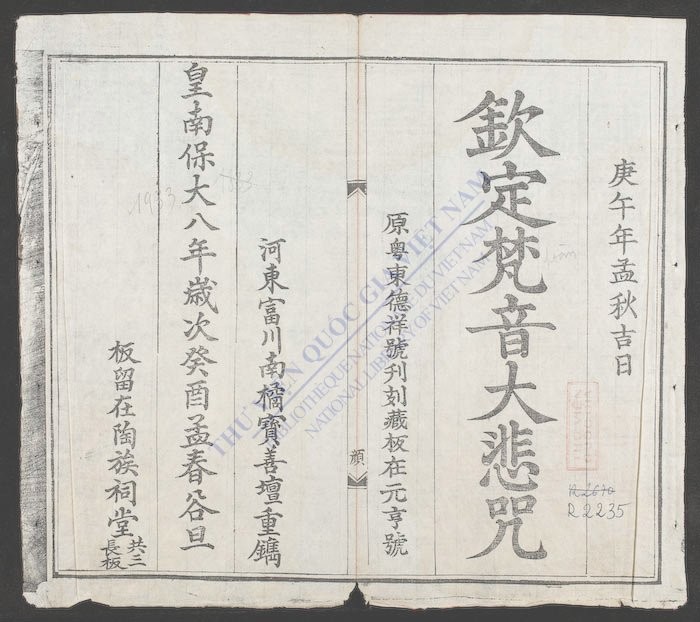 庚午年孟秋吉日
欽定梵音大悲咒
原粵東德祥號刋刻藏板在元亨號
顔
河東富川南橘寶善壇重鐫
皇南保大八年歲次癸酉孟春谷旦
板留在陶族祠堂
共三
長板
R 2235
1933
THƯ VIỆN QUỐC GIA VIỆT NAM
BIBLIOTHEQUE NATIONALE DU VIETNAM
NATIONAL LIBRARY OF VIETNAM